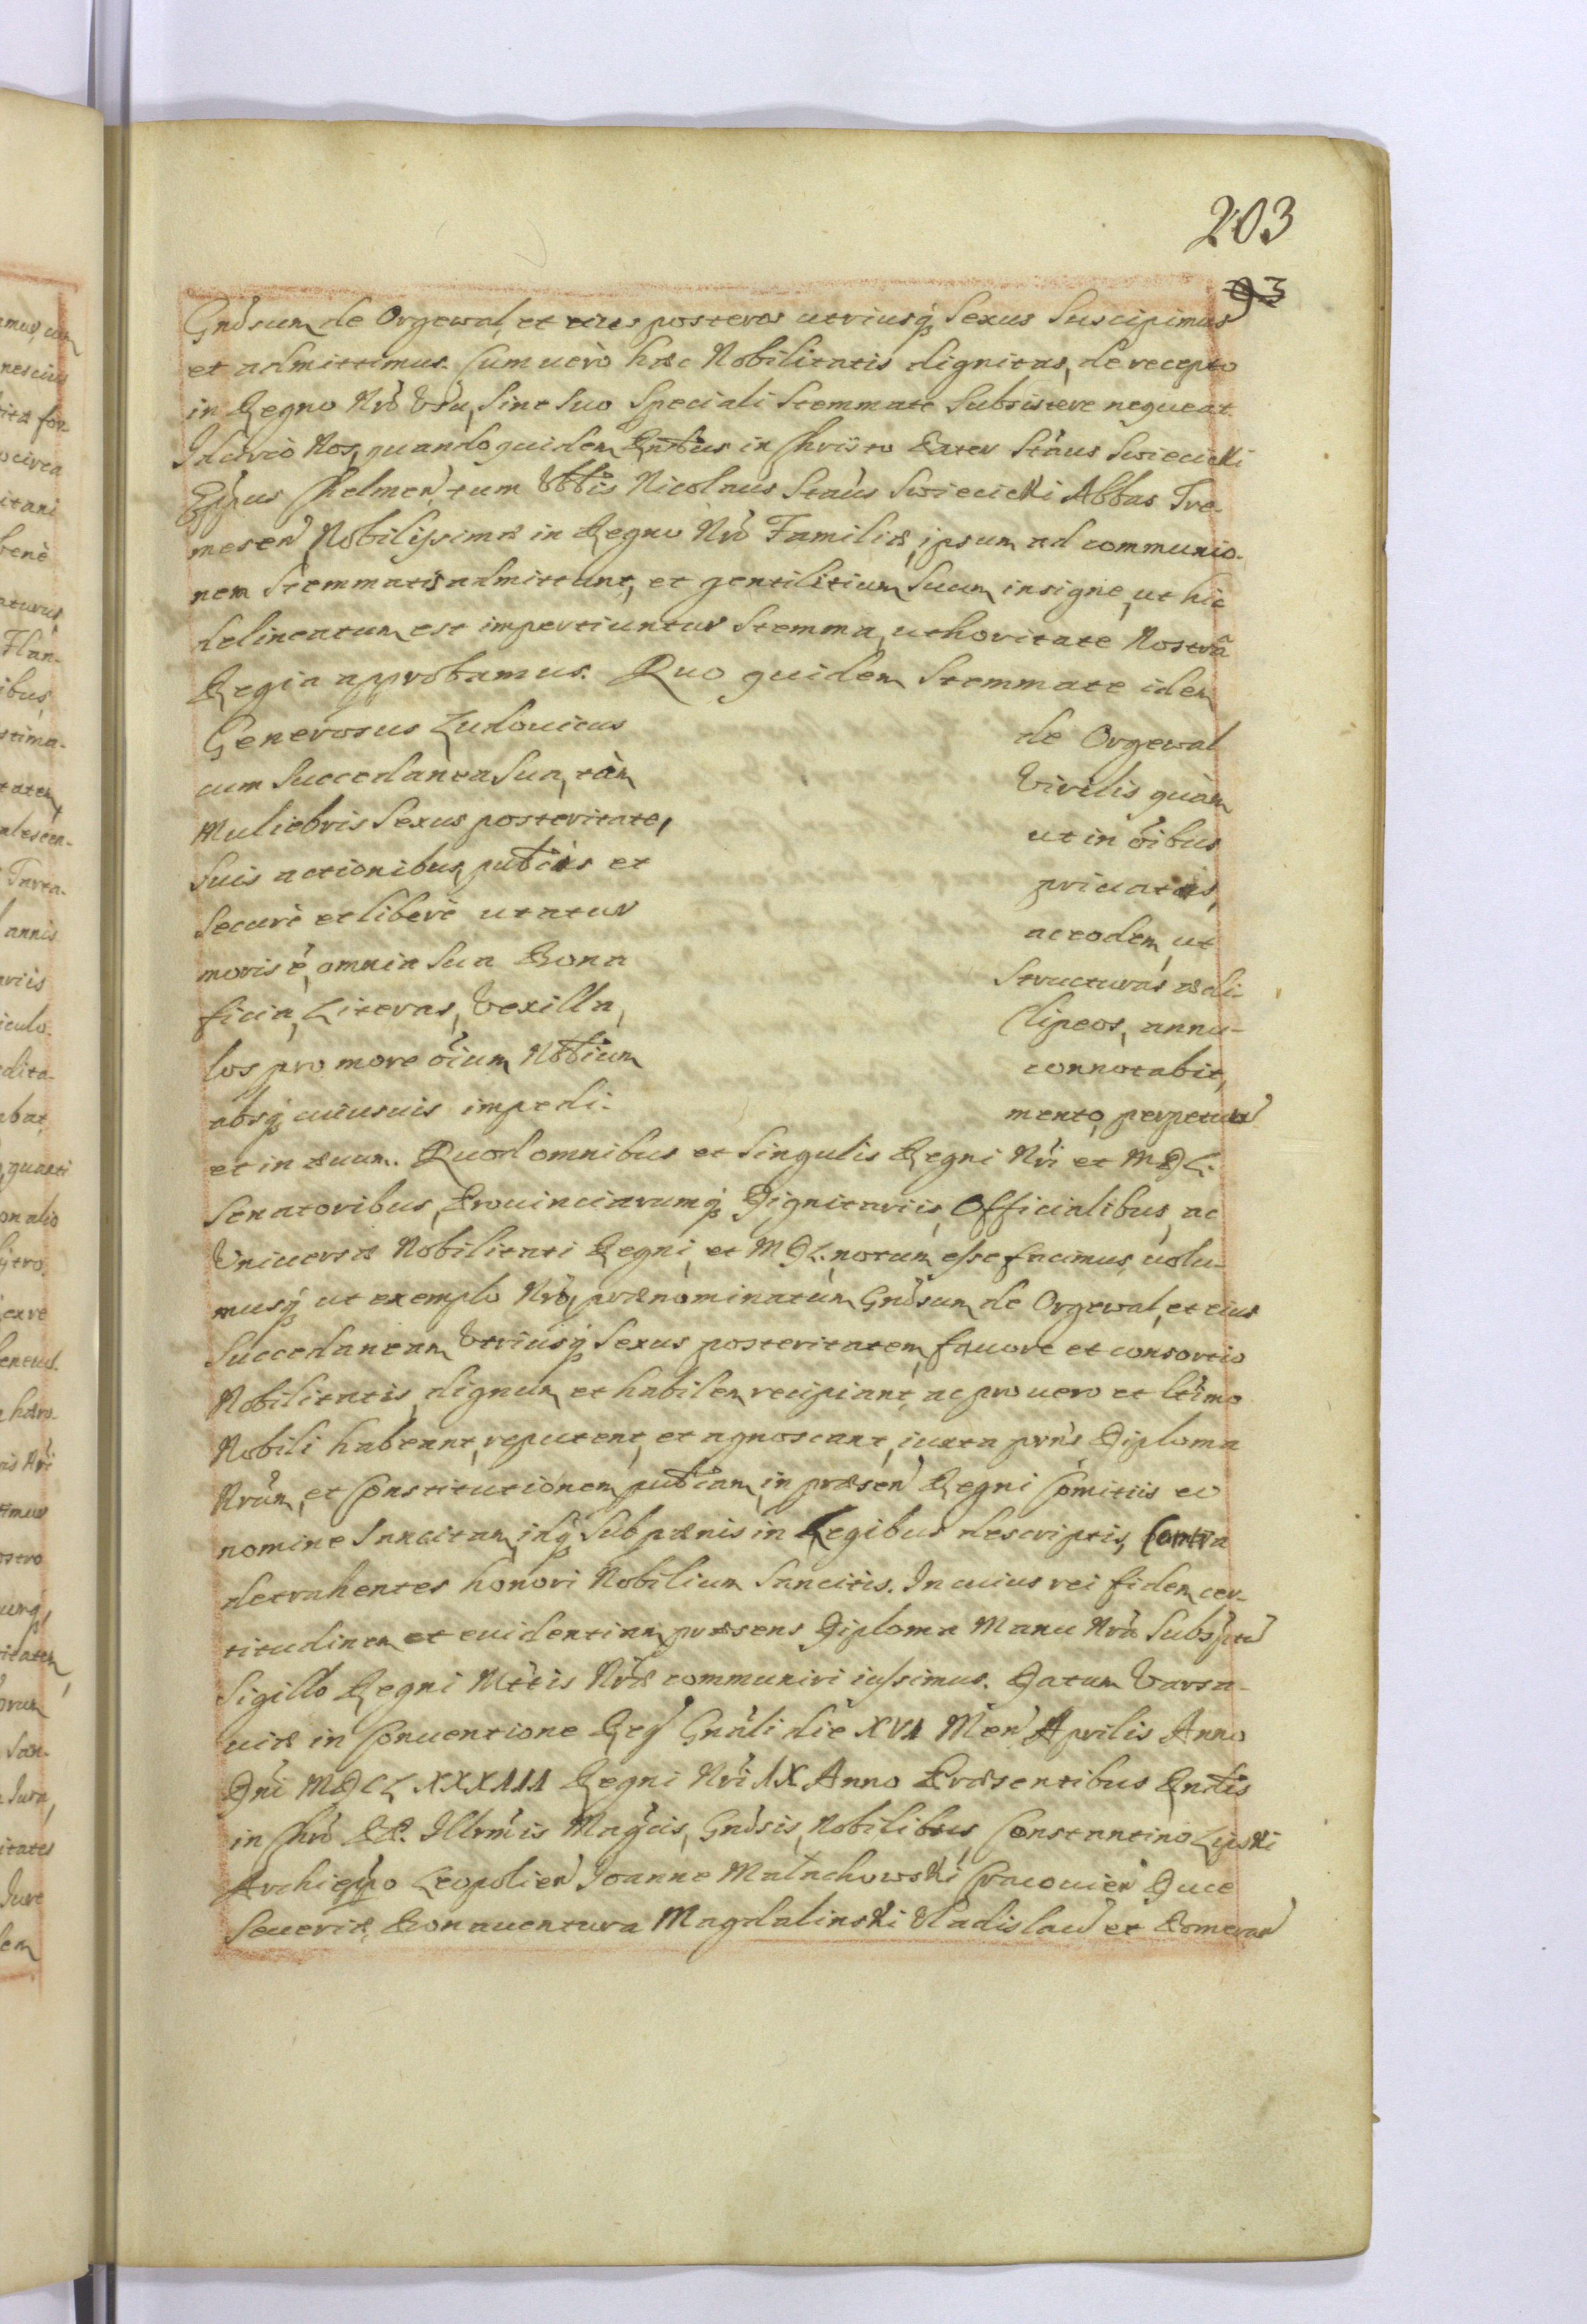 203
93
Gnösum de Orgewal, et eius posteros utriusq; Sexus Suscipimus
et admittimus. Cum uerò hæc Nobilitatis dignitas, de recepto
in Regno Nrō Usu, Sine Suo Speciali Stemmate Subsistere nequeat
Idcircò Nos, quandoquidem Rndus in Christo Pater Staus Swiecicki
Eppus Chelmen, tum Vblis Nicolaus Staus Swiecicki Abbas Tre-
mesen, Nobilissimæ in Regno Nrō Familiæ, ipsum ad communio-
nem Stemmatis admittunt, et gentilitium Suum insigne, ut hic
delineatum est impertiuntur Stemma, uthoritate Nostrâ
Regia approbamus. Quo quidem Stemmate idem
Generosus Ludouicus de Orgewal
cum Succedanea Sua, tàm Virilis quàm
Muliebris Sexus posteritate, ut in oibus
Suis actionibus, publicis et priuatis,
Securè et liberè utatur ac eodem, ut
moris è, omnia Sua Bona Structuras ædi-
ficia, Literas, Vexilla, Clipeos, annu-
los pro more oium Nblium connotabit,
absq; cuiusuis impedi- mento, perpetuo
et in æuum. Quod omnibus et Singulis Regni Nri et MDL.
Senatoribus, Prouinciarumq; Dignitariis, Officialibus, ac
Vniuersæ Nobilitati Regni, et MDL. notum esse facimus, uolu-
musq; ut exemplo Nrō, prænominatum Gnösum de Orgewal, et eius
Succedaneam Vtriusq; Sexus posteritatem, fauore et consortio
Nobilitatis, dignum et habilem recipiant, ac pro uero et ltimo
Nobili habeant, reputent, et agnoscant, iuxta pns Diploma
Nrum, et Constitutionem publicam, in præsen Regni Comitiis eo
nomine Sancitam, idq; Sub pænis in Legibus descriptis, Contra
detrahentes honori Nobilium Sancitis. In cuius rei fidem cer-
titudinem et euidentiam præsens Diploma Manu Nra Subscptu
Sigillo Regni Mttis Nræ communiri iussimus. Datum Varsa-
uiæ in Conuentione Reg Gnāli die XVI Men Aprilis Anno
Dni MDCLXXXIII Regni Nri IX Anno Præsentibus Rndis
in Chro PP. Illrmis Magcis, Gnösis, Nobilibus, Constantino Lipski
Archieppo Leopolien Joanne Małachowski Cracouien Duce
Seueriæ, Bonauentura Magdalinski Vladislau et Pomeran